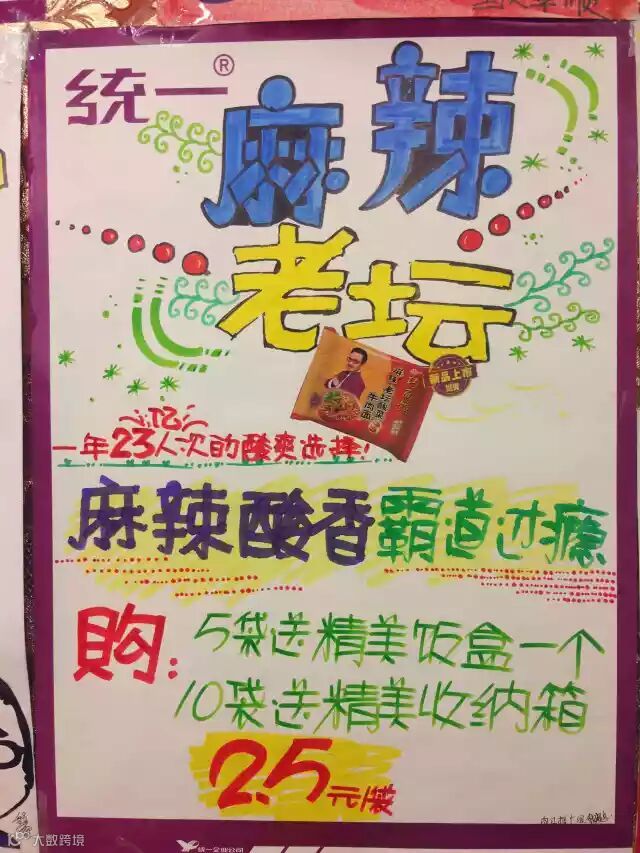 统一®
麻辣
老坛
新品上市
老坛酸菜
牛肉面
亿
一年23人次的酸爽选择!
麻辣酸香霸道过瘾
購:
5袋送精美饭盒一个
10袋送精美收纳箱
2.5元/袋
统一企业公司
大数跨境